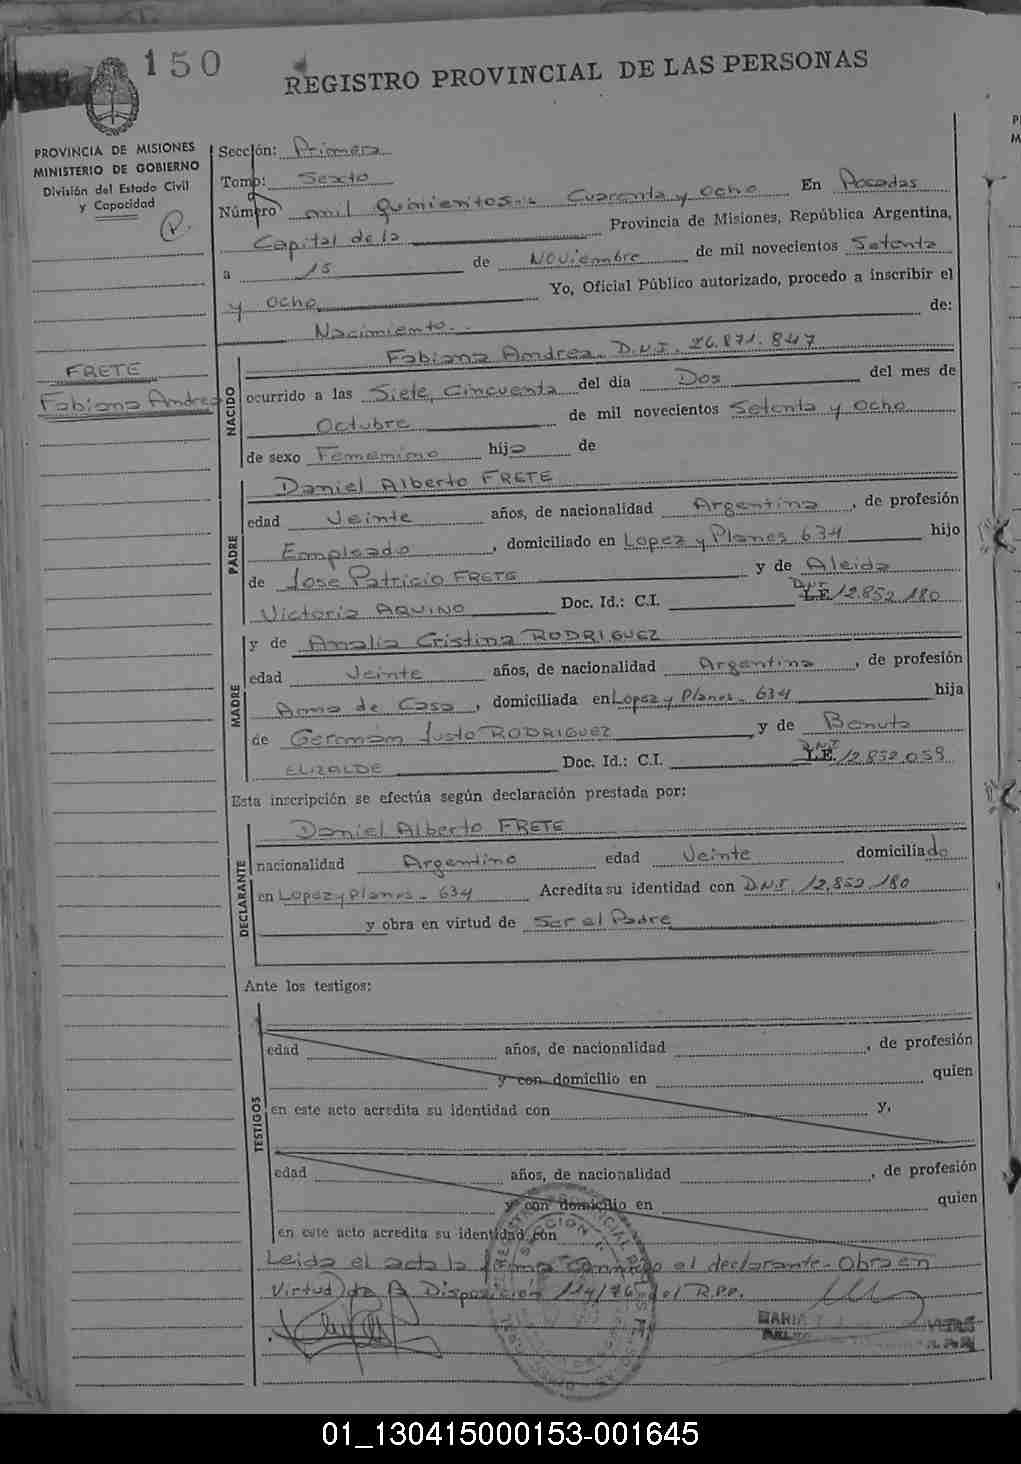 150
REGISTRO PROVINCIAL DE LAS PERSONAS
PROVINCIA DE MISIONES
MINISTERIO DE GOBIERNO
División del Estado Civil
y Capacidad
Sección: Primera
Tomo: Sexto
Número mil quinientos Cuarenta y ocho En Posadas
Capital de la Provincia de Misiones, República Argentina,
a 15 de Noviembre de mil novecientos Setenta
y ocho Yo, Oficial Público autorizado, procedo a inscribir el
Nacimiento de:
FRETE
Fabiana Andrea
NACIDO
Fabiana Andrea. D.N.I. 26.871.847
ocurrido a las Siete, Cincuenta del día Dos del mes de
Octubre de mil novecientos Setenta y ocho
de sexo Femenino hija de
PADRE
Daniel Alberto FRETE
edad Veinte años, de nacionalidad Argentina, de profesión
Empleado, domiciliado en Lopez y Planes 634 hijo
de Jose Patricio FRETE y de Aleida
Victoria AQUINO Doc. Id.: C.I. D.N.I. L.E. 12.852.180
MADRE
y de Analia Cristina RODRIGUEZ
edad Veinte años, de nacionalidad Argentina, de profesión
Ama de Casa, domiciliada en Lopez y Planes - 634 hija
de German Justo RODRIGUEZ y de Benuta
ELIZALDE Doc. Id.: C.I. D.N.I. L.E. 12.852.059
Esta inscripción se efectúa según declaración prestada por:
DECLARANTE
Daniel Alberto FRETE
nacionalidad Argentino edad Veinte domiciliado
en Lopez y Planes - 634 Acredita su identidad con D.N.I. 12.852.180
y obra en virtud de Ser el Padre
Ante los testigos:
TESTIGOS
edad años, de nacionalidad, de profesión
y con domicilio en quien
en este acto acredita su identidad con y,
edad años, de nacionalidad, de profesión
y con domicilio en quien
en este acto acredita su identidad con
Leida el acta la firma Conmigo el declarante. Obra en
Virtud de la Disposición 114/76 del R.P.P.
MARIA
01_130415000153-001645